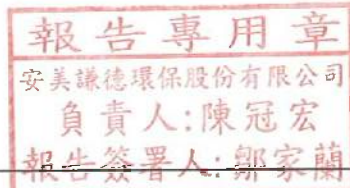 報告專用章
安美謙德環保股份有限公司
負責人:陳冠宏
報告簽署人:鄒家蘭